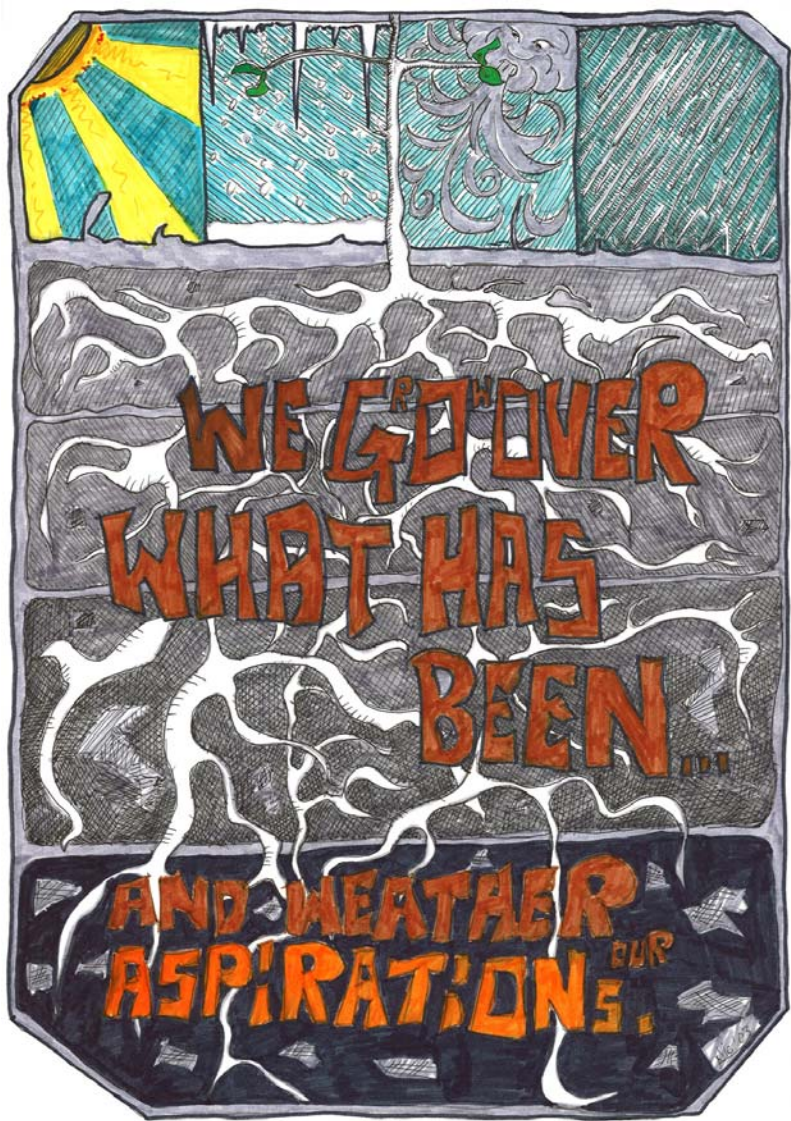 WE GROW OVER
WHAT HAS
BEEN...
AND WEATHER
OUR
ASPIRATIONS.